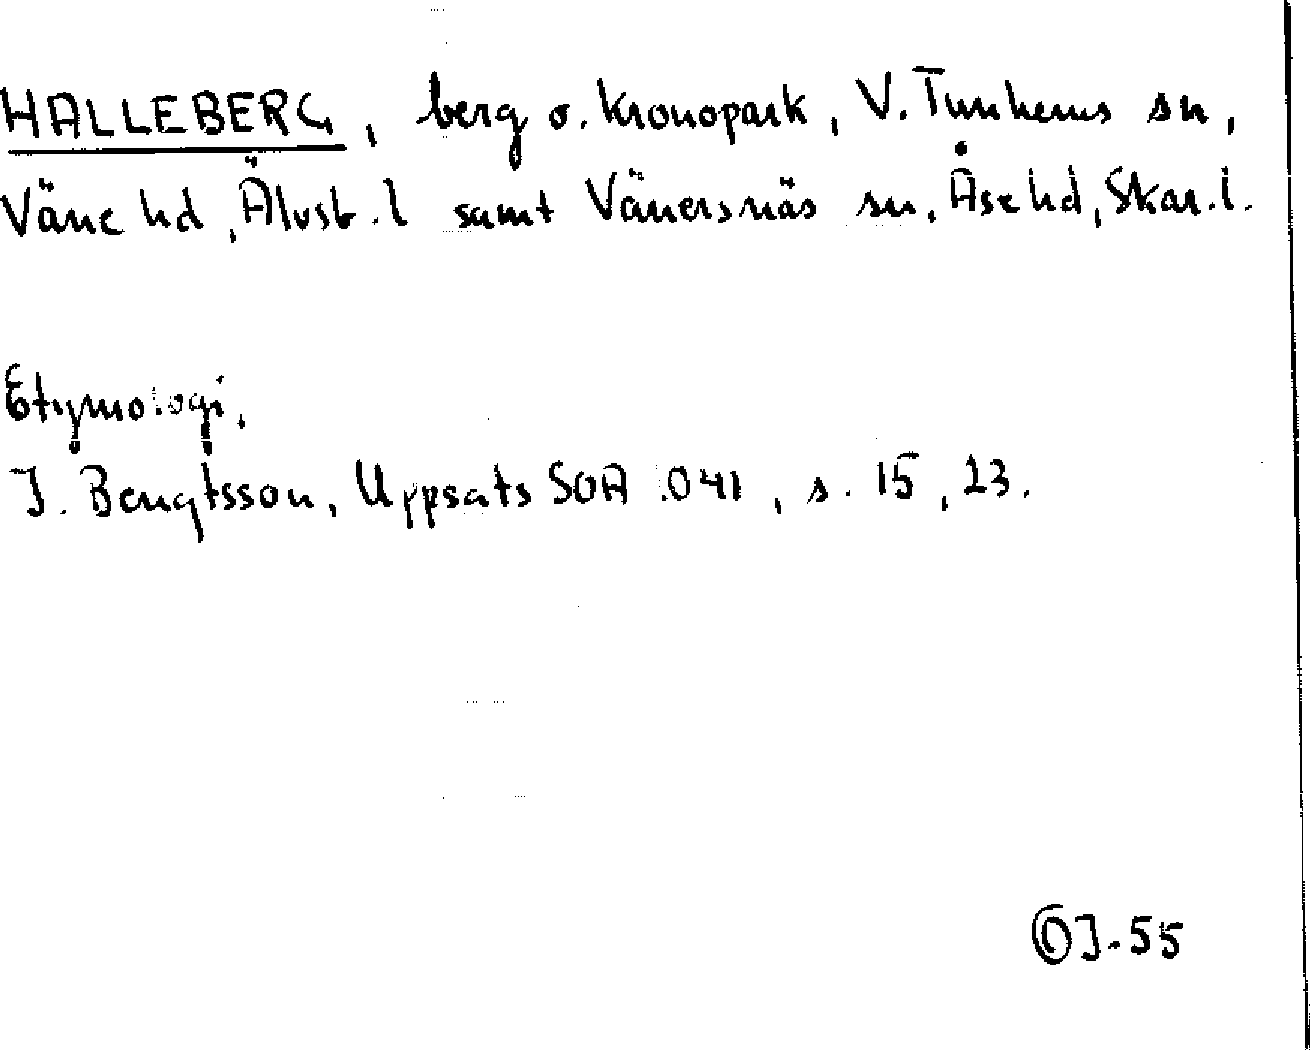 HALLEBERG, berg o. kronopark, V. Tunhems sn,
Väne hd, Älvsb. l samt Vänersnäs sn, Åse hd, Skar. l.
Etymologi.
I. Bengtsson, Uppsats SOA :041, s. 15, 23.
OJ-55